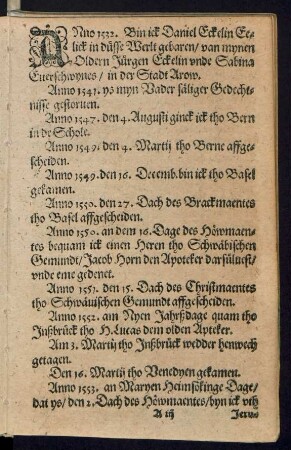 ANno 1532. Bin ick Daniel Eckelin Ee-
lick in düsse Werlt gebaren/ van mynen
Oldern Jürgen Eckelin vnde Sabina
Euerschwynes/ in der Stadt Arow.
Anno 1541. ys myn Vader säliger Gedecht-
nisse gestoruen.
Anno 1547. den 4. Augusti ginck ick tho Bern
in de Schole.
Anno 1549. den 4. Martij tho Berne affge-
scheiden.
Anno 1549. den 16. Decemb. bin ick tho Basel
gekamen.
Anno 1550. den 27. Dach des Brackmaentes
tho Basel affgescheiden.
Anno 1550. an dem 16. Dage des Höwmaen-
tes bequam ick einen Heren tho Schwäbischen
Gemundt/ Jacob Horn den Apoteker darsüluest/
vnde eme gedenet.
Anno 1551. den 15. Dach des Christmaentes
tho Schwäuischen Gemundt affgescheiden.
Anno 1552. am Nyen Jahrßdage quam tho
Jnßbrück tho H. Lucas dem olden Apteker.
Am 3. Martij tho Jnßbrück wedder henwech
getagen.
Den 16. Martij tho Venedyen gekamen.
Anno 1553. an Maryen Heimsökinge Dage/
dat ys/ den 2. Dach des Höwmaentes/ byn ick vth
A iij Jeru-